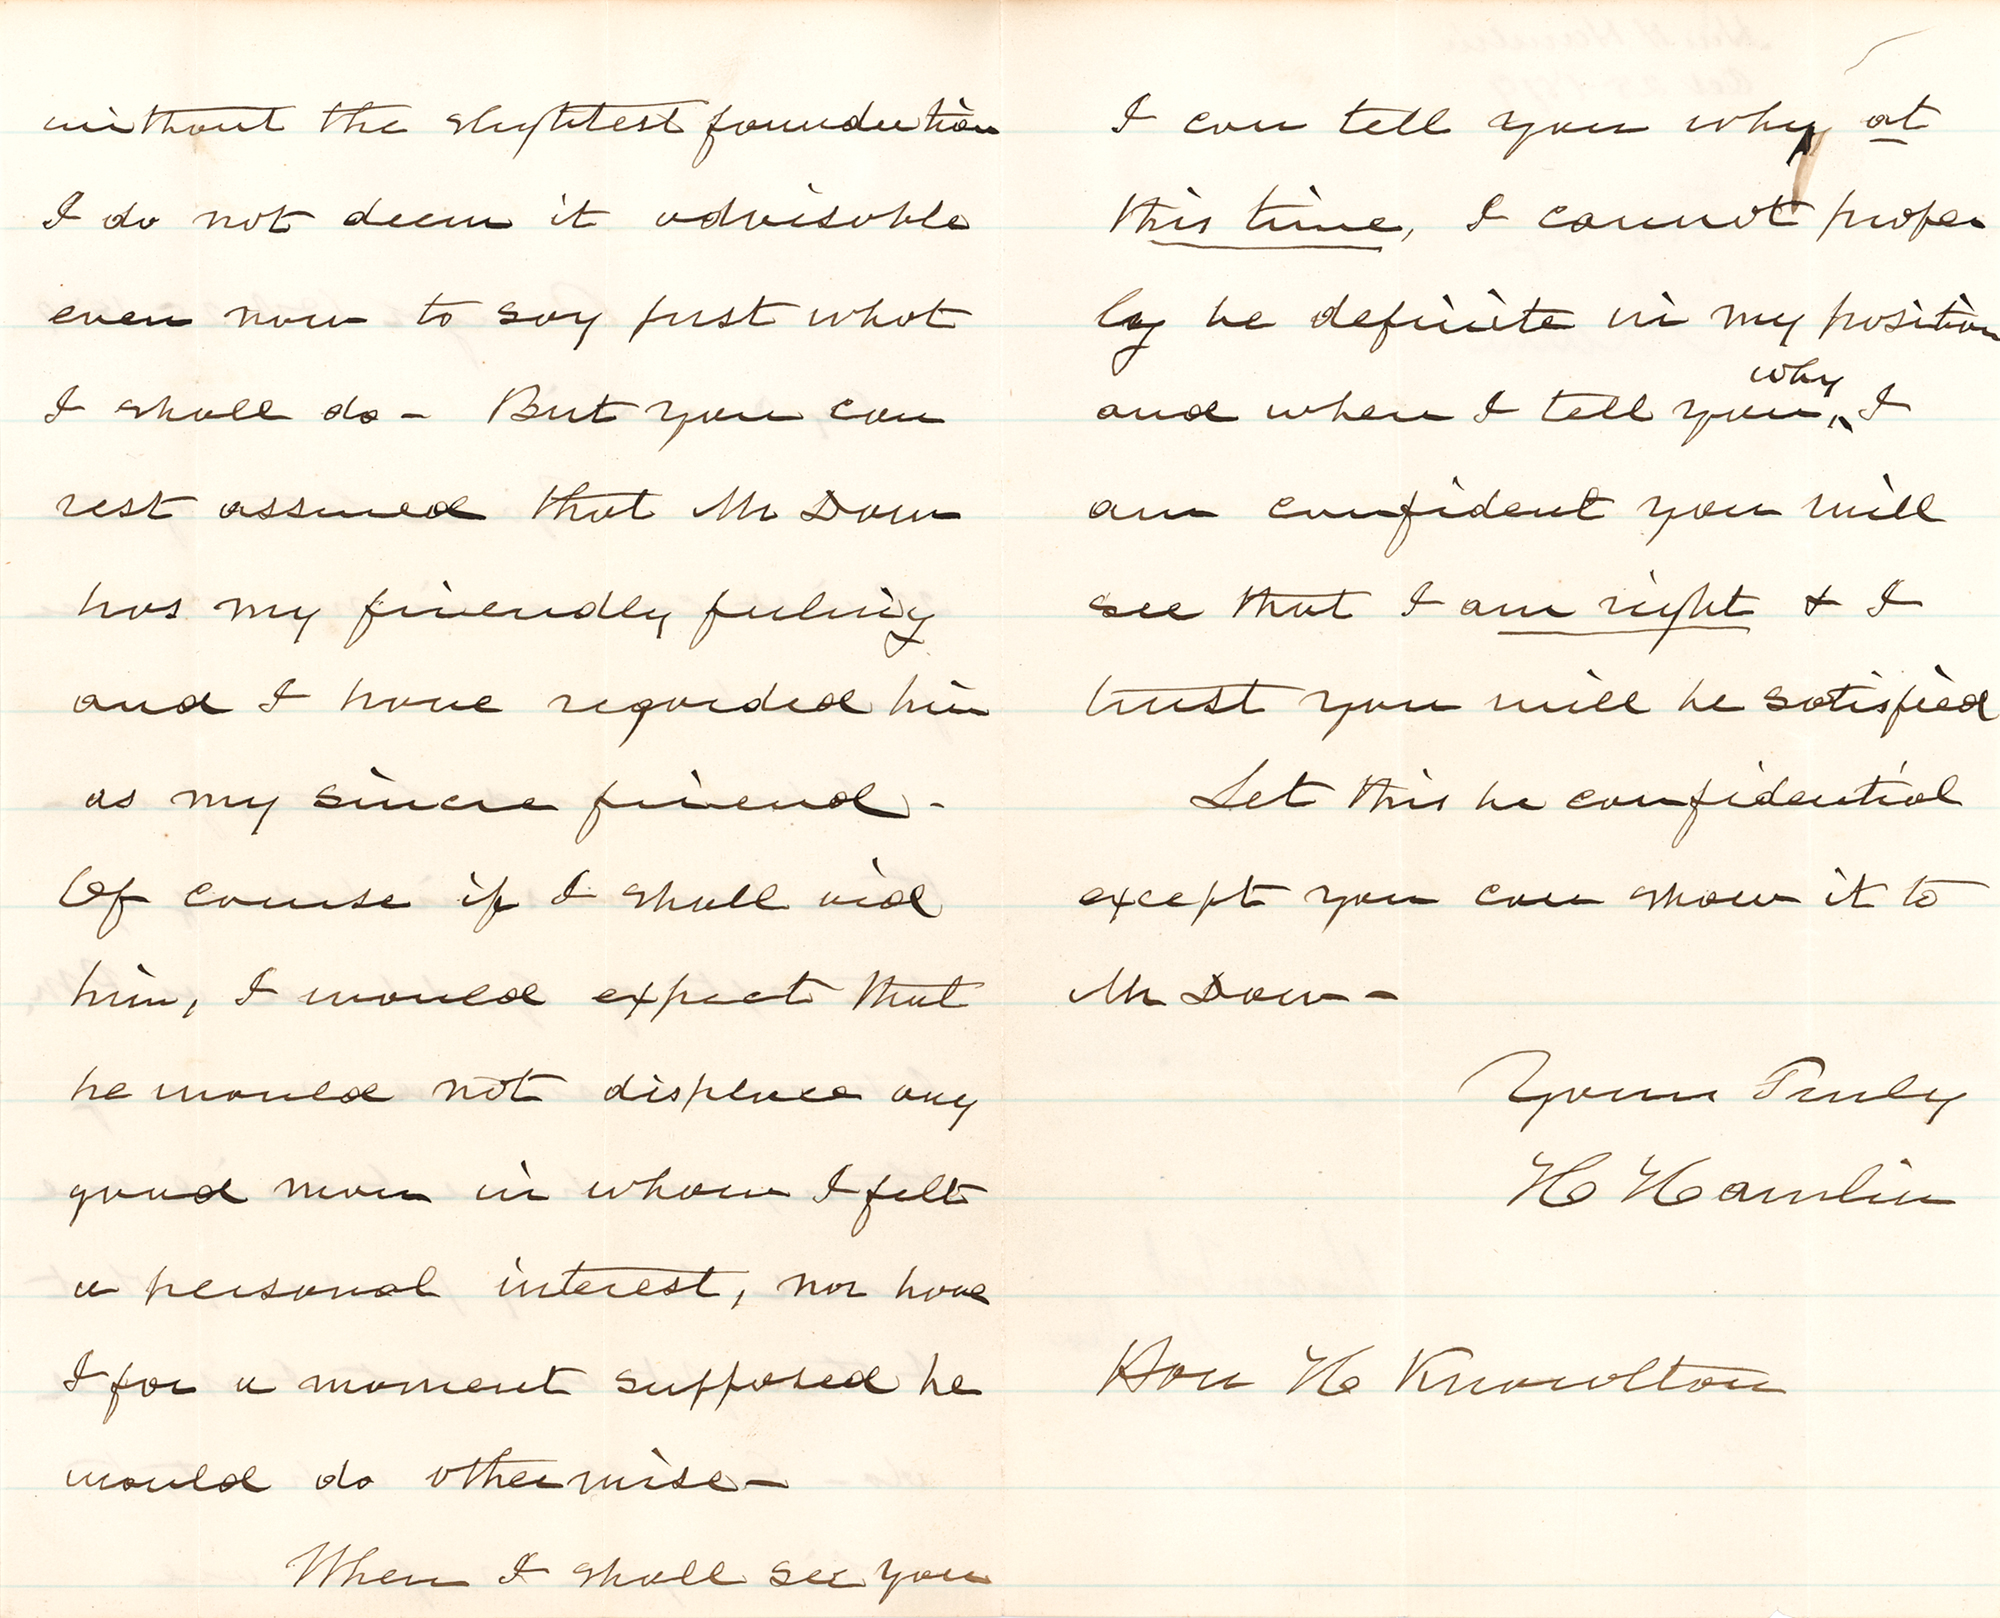 without the slightest foundation
I do not deem it advisable
even now to say just what
I shall do – But you can
rest assured that Mr Dow
has my friendly feeling
and I have regarded him
as my sincere friend. –
Of course if I shall aid
him, I would expect that
he would not displace any
good man in whom I felt
a personal interest, nor have
I for a moment supposed he
would do otherwise –
When I shall see you
I can tell you why at
this time, I cannot proper
ly be definite in my position
why
and when I tell you, ^ I
am confident you will
see that I am right & I
trust you will be satisfied
Let this be confidential
except you can show it to
Mr Dow –
Yours Truly
H Hamlin
Hon H Knowlton